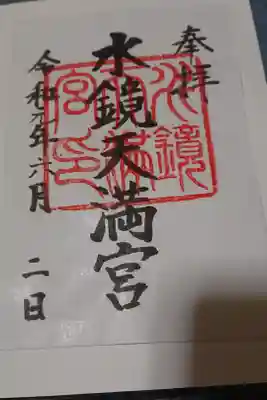 奉拝
水鏡天満宮
令和元年六月
二日
水鏡
天満
宮印